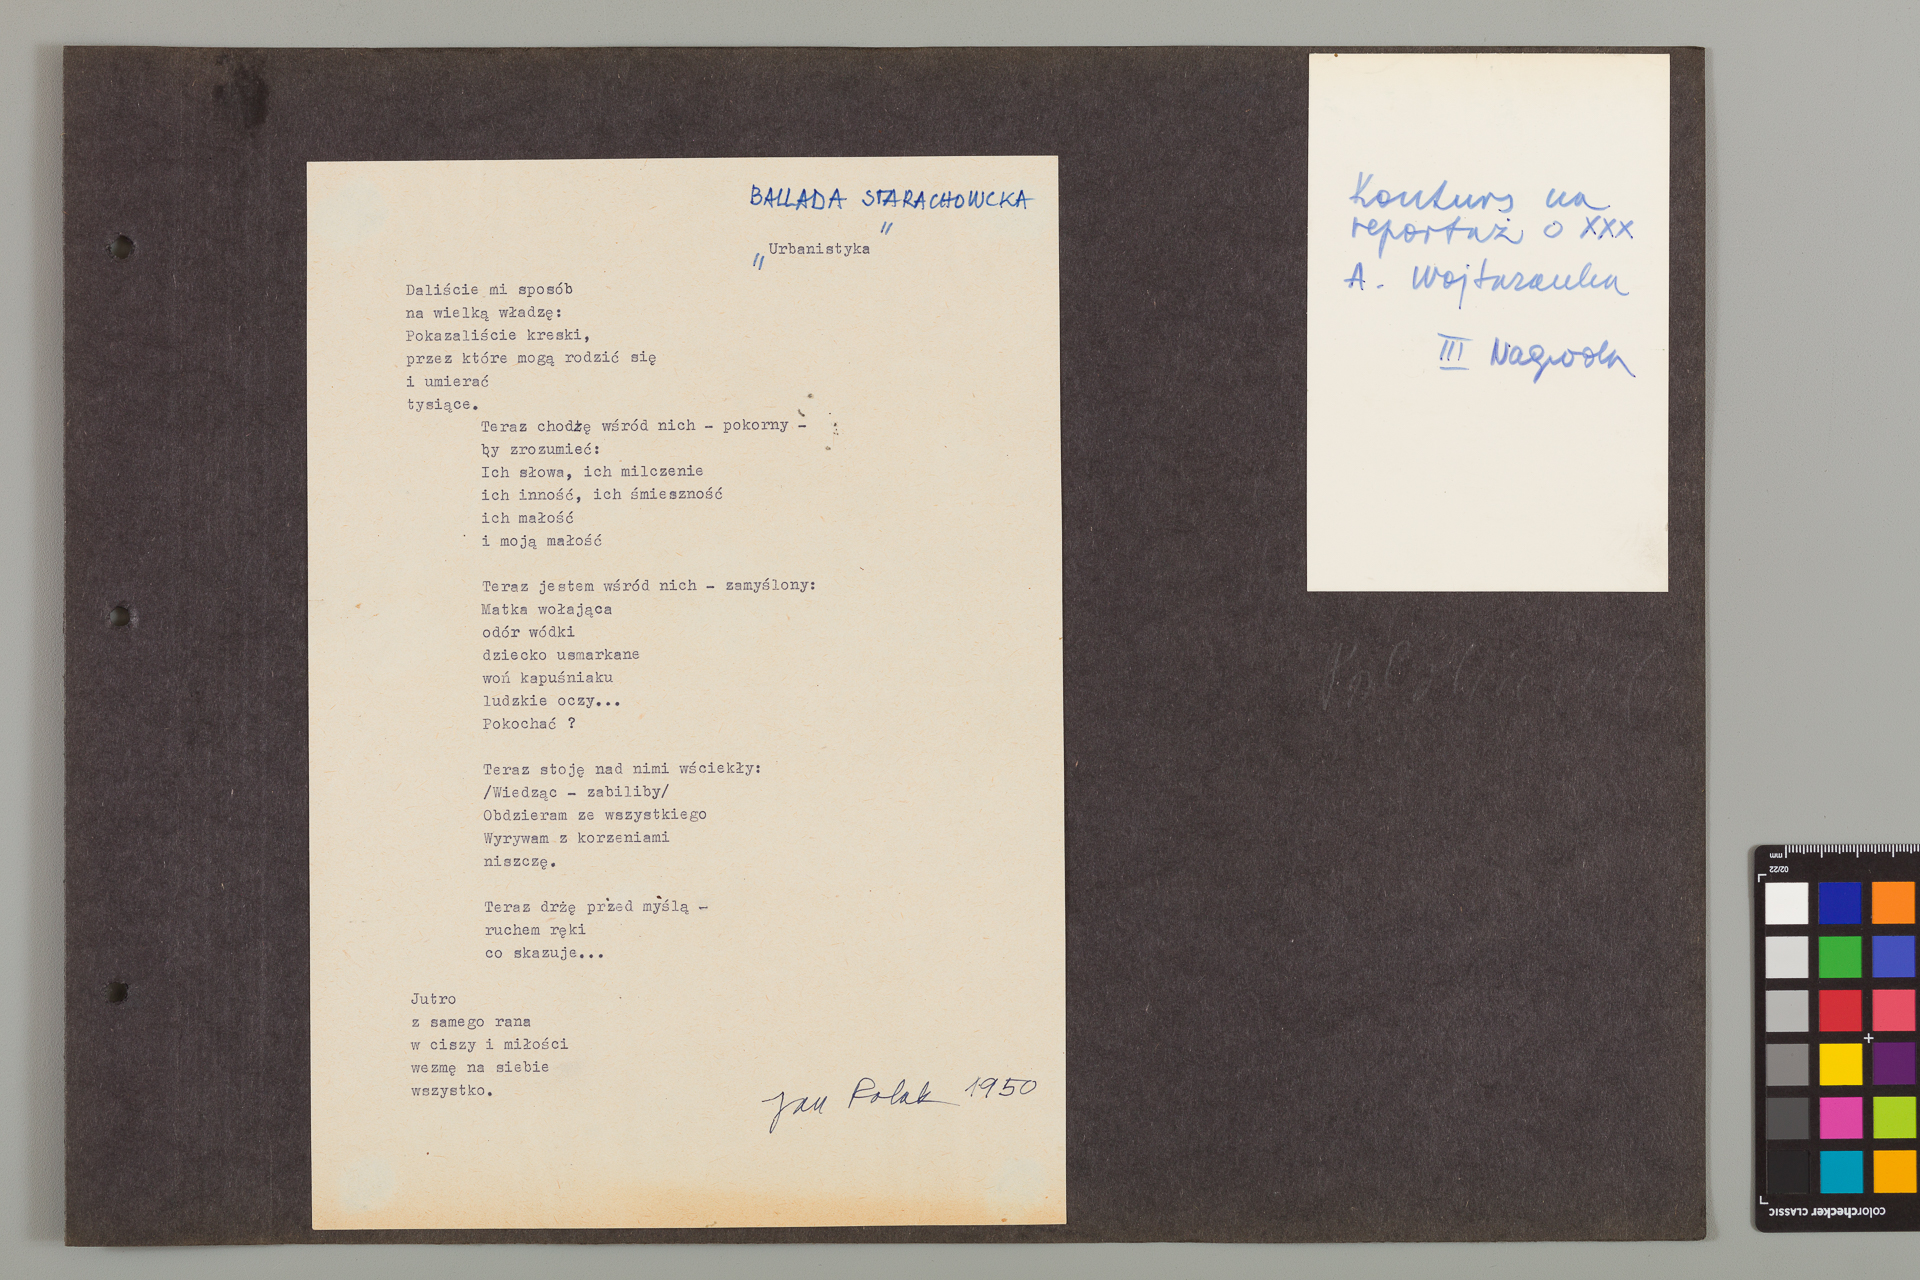 BALLADA STARACHOWCKA
„Urbanistyka"
Daliście mi sposób
na wielką władzę:
Pokazaliście kreski,
przez które mogą rodzić się
i umierać
tysiące.
Teraz chodzę wśród nich - pokorny -
by zrozumieć:
Ich słowa, ich milczenie
ich inność, ich śmieszność
ich małość
i moją małość
Teraz jestem wśród nich - zamyślony:
Matka wołająca
odór wódki
dziecko usmarkane
woń kapuśniaku
ludzkie oczy...
Pokochać ?
Teraz stoję nad nimi wściekły:
/Wiedząc - zabiliby/
Obdzieram ze wszystkiego
Wyrywam z korzeniami
niszczę.
Teraz drżę przed myślą -
ruchem ręki
co skazuje...
Jutro
z samego rana
w ciszy i miłości
wezmę na siebie
wszystko.
Jan Polak 1950
Konkurs na
reportaż o XXX
A.
III Nagroda
mm
02/22
colorchecker CLASSIC